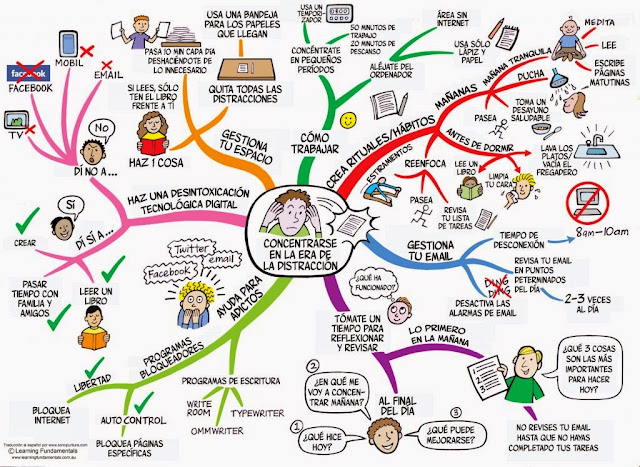 CONCENTRARSE
EN LA ERA DE
LA DISTRACCIÓN
CREA RITUALES/HÁBITOS
MAÑANAS
MAÑANA TRANQUILA
MEDITA
LEE
ESCRIBE
PÁGINAS
MATUTINAS
DUCHA
TOMA UN
DESAYUNO
SALUDABLE
PASEA
ANTES DE DORMIR
LAVA LOS
PLATOS/
VACÍA EL
FREGADERO
LIMPIA
TU CARA
LEE UN
LIBRO
REVISA
TU LISTA
DE TAREAS
REENFOCA
PASEA
ESTIRAMIENTOS
GESTIONA
TU EMAIL
TIEMPO DE
DESCONEXIÓN
8am-10am
REVISA TU EMAIL
EN PUNTOS
DETERMINADOS
DEL DÍA
2-3 VECES
AL DÍA
DING
DING
DESACTIVA LAS
ALARMAS DE EMAIL
TÓMATE UN
TIEMPO PARA
REFLEXIONAR
Y REVISAR
¿QUÉ HA
FUNCIONADO?
LO PRIMERO
EN LA MAÑANA
1
2
3
¿QUÉ 3 COSAS
SON LAS MÁS
IMPORTANTES
PARA HACER
HOY?
NO REVISES TU EMAIL
HASTA QUE NO HAYAS
COMPLETADO TUS TAREAS
AL FINAL
DEL DÍA
1
¿QUÉ HICE
HOY?
2
¿EN QUÉ ME
VOY A CONCEN-
TRAR MAÑANA?
3
¿QUÉ PUEDE
MEJORARSE?
AYUDA PARA
ADICTOS
Twitter
email
Facebook
PROGRAMAS
BLOQUEADORES
LIBERTAD
BLOQUEA
INTERNET
AUTO CONTROL
BLOQUEA PÁGINAS
ESPECÍFICAS
PROGRAMAS DE ESCRITURA
WRITE
ROOM
OMMWRITER
TYPEWRITER
HAZ UNA DESINTOXICACIÓN
TECNOLÓGICA DIGITAL
DÍ NO A...
NO
TV
facebook
FACEBOOK
MOBIL
EMAIL
DÍ SÍ A...
SÍ
CREAR
PASAR
TIEMPO CON
FAMILIA Y
AMIGOS
LEER UN
LIBRO
GESTIONA
TU ESPACIO
HAZ 1 COSA
SI LEES, SÓLO
TEN EL LIBRO
FRENTE A TÍ
PASA 10 MIN CADA DÍA
DESHACIÉNDOTE DE
LO INNECESARIO
USA UNA BANDEJA
PARA LOS PAPELES
QUE LLEGAN
QUITA TODAS LAS
DISTRACCIONES
CÓMO
TRABAJAR
CONCÉNTRATE
EN PEQUEÑOS
PERÍODOS
USA UN
TEMPORI-
ZADOR
50 MINUTOS DE
TRABAJO
20 MINUTOS DE
DESCANSO
ALÉJATE DEL
ORDENADOR
ÁREA SIN
INTERNET
USA SÓLO
LÁPIZ Y
PAPEL
Traducción al español por www.sonojuntura.com
© Learning Fundamentals
www.learningfundamentals.com.au